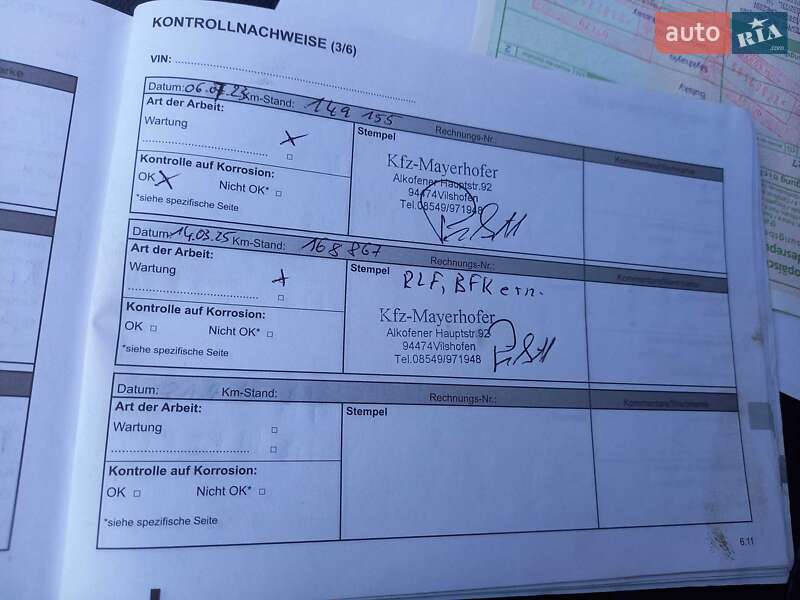 KONTROLLNACHWEISE (3/6)
VIN:
Datum: 06.07.23 Km-Stand: 149 155 Rechnungs-Nr.: Kommentare/Nachname
Art der Arbeit:
Wartung
Stempel
Kfz-Mayerhofer
Alkofener Hauptstr.92
94474Vilshofen
Tel.08549/971948
Kontrolle auf Korrosion:
OK X Nicht OK*
*siehe spezifische Seite
Datum: 14.03.25 Km-Stand: 168 867 Rechnungs-Nr.:
Art der Arbeit:
Wartung
Stempel
RLF, BFK ern.
Kfz-Mayerhofer
Alkofener Hauptstr.92
94474Vilshofen
Tel.08549/971948
Kontrolle auf Korrosion:
OK Nicht OK*
*siehe spezifische Seite
Datum: Km-Stand: Rechnungs-Nr.:
Art der Arbeit:
Wartung
Stempel
Kontrolle auf Korrosion:
OK Nicht OK*
*siehe spezifische Seite
6.11
auto RIA .com